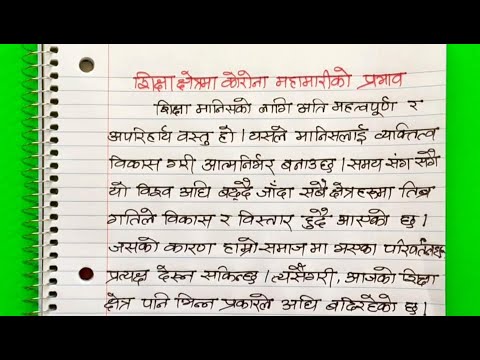 शिक्षा क्षेत्रमा कोरोना महामारीको प्रभाव
शिक्षा मानिसको लागि अति महत्वपूर्ण र
अपरिहार्य वस्तु हो । यसले मानिसलाई व्यक्तित्व
विकास गरी आत्मनिर्भर बनाउछ । समय संग सँगै
यो विश्व अघि बढ्दै जाँदा सबै क्षेत्रहरूमा तिब्र
गतिले विकास र विस्तार हुदै आएको छ ।
जसको कारण हाम्रो समाज मा भएका परिवर्तनहरू
प्रत्यक्ष देख्न सकिन्छ । त्यसैगरी, आजको शिक्षा
क्षेत्र पनि भिन्न प्रकारले अघि बढिरहेको छ ।